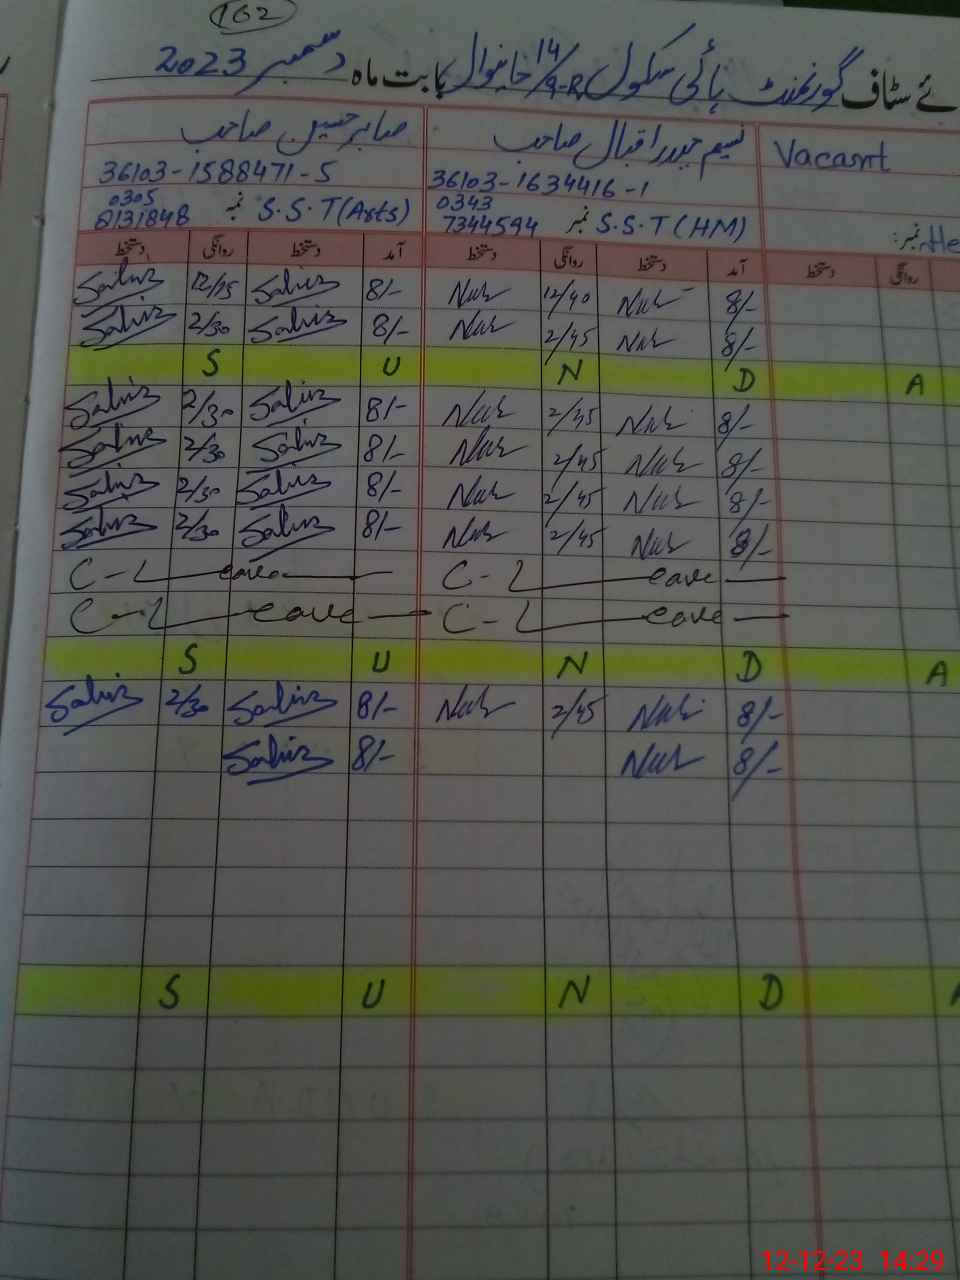 162
ئے سٹاف گورنمنٹ ہائی سکول 14/9-R خانیوال بابت ماہ دسمبر 2023
صابر حسین صاحب
36103-1588471-5
0305
8131848 نمبر S.S.T (Arts)
نسیم حیدر اقبال صاحب
36103-1634416-1
0343
7344594 نمبر S.S.T (HM)
Vacasnt
نمبر: He
دستخط روانگی دستخط آمد دستخط روانگی دستخط آمد دستخط روانگی
Sabir 12/15 Sabir 8/- 12/40 8/-
Sabir 2/30 Sabir 8/- 2/45 8/-
S U N D A
Sabir 2/30 Sabir 8/- 2/45 8/-
Sabir 2/30 Sabir 8/- 2/45 8/-
Sabir 2/30 Sabir 8/- 2/45 8/-
Sabir 2/30 Sabir 8/- 2/45 8/-
C-Leave C-Leave
C-Leave C-Leave
S U N D A
Sabir 2/30 Sabir 8/- 2/45 8/-
Sabir 8/- 8/-
S U N D A
12-12-23 14:29